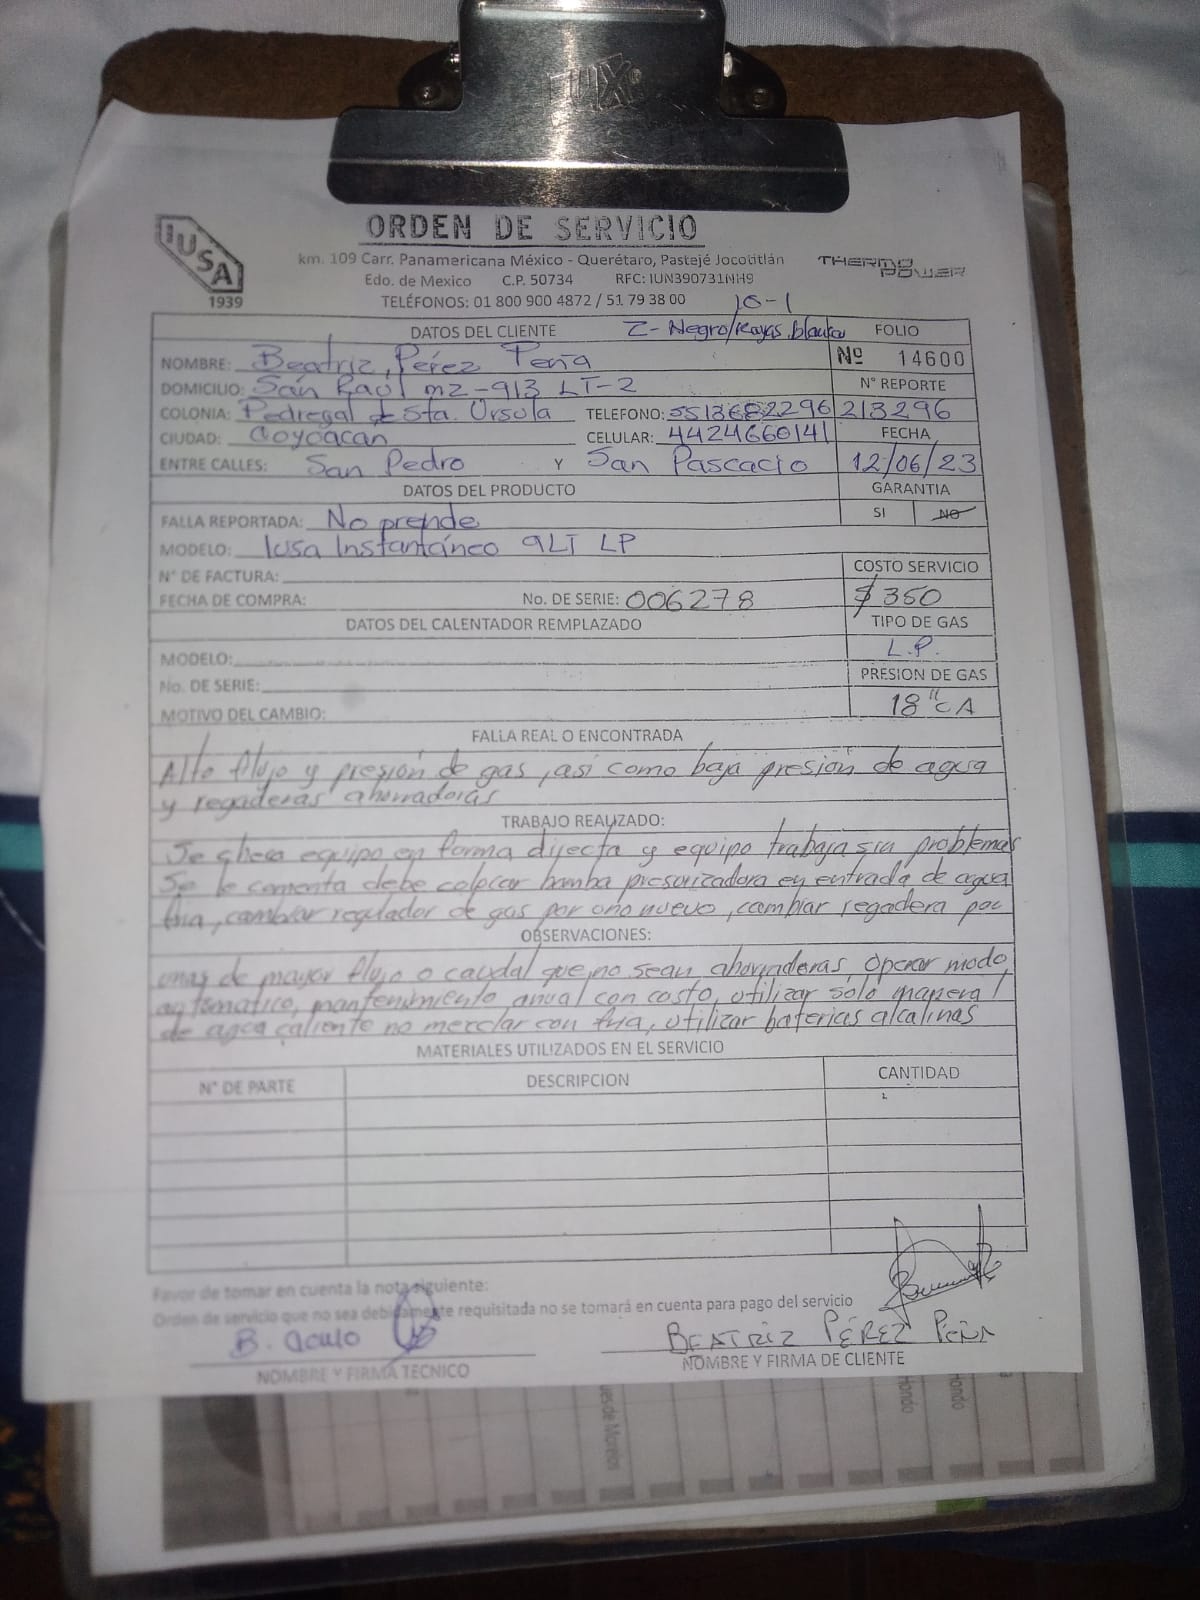 TRUX
ORDEN DE SERVICIO
IUSA
1939
km. 109 Carr. Panamericana México - Querétaro, Pastejé Jocotitlán
THERMO POWER
Edo. de Mexico C.P. 50734 RFC: IUN390731NH9
TELÉFONOS: 01 800 900 4872 / 51 79 38 00
10-1
DATOS DEL CLIENTE Z- Negro/Rayas blancas FOLIO
NOMBRE: Beatriz, Pérez Peña Nº 14600
DOMICILIO: San Raúl mz-913 LT-2 N° REPORTE
COLONIA: Pedregal de Sta. Ursula TELEFONO: 5513682296 213296
CIUDAD: Coyoacan CELULAR: 4424660141 FECHA
ENTRE CALLES: San Pedro Y San Pascacio 12/06/23
DATOS DEL PRODUCTO GARANTIA
FALLA REPORTADA: No prende SI NO
MODELO: Iusa Instantáneo 9LT LP
N° DE FACTURA: COSTO SERVICIO
FECHA DE COMPRA: No. DE SERIE: 006278 $ 350
DATOS DEL CALENTADOR REMPLAZADO TIPO DE GAS
MODELO: L.P.
No. DE SERIE: PRESION DE GAS
MOTIVO DEL CAMBIO: 18" CA
FALLA REAL O ENCONTRADA
Alto flujo y presión de gas, así como baja presión de agua
y regaderas ahorradoras
TRABAJO REALIZADO:
Se checa equipo en forma directa y equipo trabaja sin problemas
Se le comenta debe colocar bomba presurizadora en entrada de agua
fria, cambiar regulador de gas por uno nuevo, cambiar regadera por
OBSERVACIONES:
unas de mayor flujo o caudal que no sean ahorradoras, operar modo
automatico, mantenimiento anual con costo, utilizar solo maneral
de agua caliente no mezclar con fria, utilizar baterias alcalinas
MATERIALES UTILIZADOS EN EL SERVICIO
N° DE PARTE DESCRIPCION CANTIDAD
Favor de tomar en cuenta la nota siguiente:
Orden de servicio que no sea debidamente requisitada no se tomará en cuenta para pago del servicio
B. BEATRIZ PÉREZ PEÑA
NOMBRE Y FIRMA TECNICO NOMBRE Y FIRMA DE CLIENTE
Hondo
Hondo